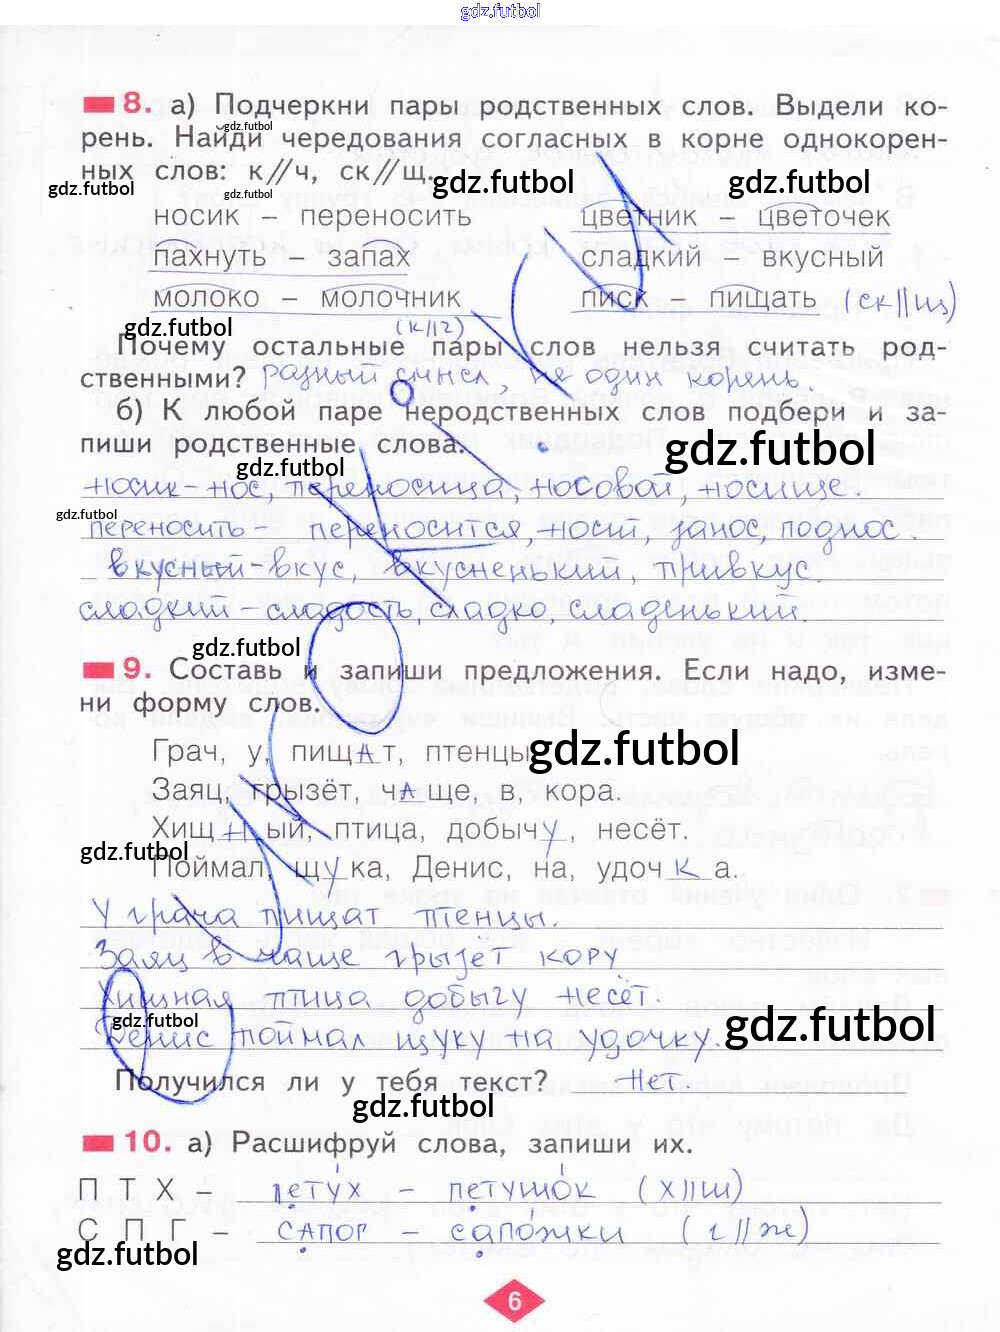 gdz.futbol
8. а) Подчеркни пары родственных слов. Выдели ко-
gdz.futbol
рень. Найди чередования согласных в корне однокорен-
ных слов: к//ч, ск//щ.
gdz.futbol gdz.futbol gdz.futbol gdz.futbol
носик – переносить цветник – цветочек
пахнуть – запах сладкий – вкусный
молоко – молочник писк – пищать (ск//щ)
gdz.futbol (к//ч)
Почему остальные пары слов нельзя считать род-
ственными? разный смысл, не один корень.
б) К любой паре неродственных слов подбери и за-
пиши родственные слова.
gdz.futbol gdz.futbol
носик – нос, переносица, носовой, носище.
gdz.futbol
переносить – переносится, носит, занос, поднос.
вкусный – вкус, вкусненький, привкус.
сладкий – сладость, сладко, сладенький.
gdz.futbol
9. Составь и запиши предложения. Если надо, изме-
ни форму слов.
Грач, у, пищАт, птенцы.
gdz.futbol
Заяц, грызёт, чАще, в, кора.
Хищный, птица, добычу, несёт.
gdz.futbol
Поймал, щука, Денис, на, удочка.
У грача пищат птенцы.
Заяц в чаще грызет кору
Хищная птица добычу несёт.
gdz.futbol gdz.futbol
Денис поймал щуку на удочку.
Получился ли у тебя текст? Нет.
gdz.futbol
10. а) Расшифруй слова, запиши их.
П Т Х – петух – петушок (х//ш)
С П Г – сапог – сапожки (г//ж)
gdz.futbol gdz.futbol
6